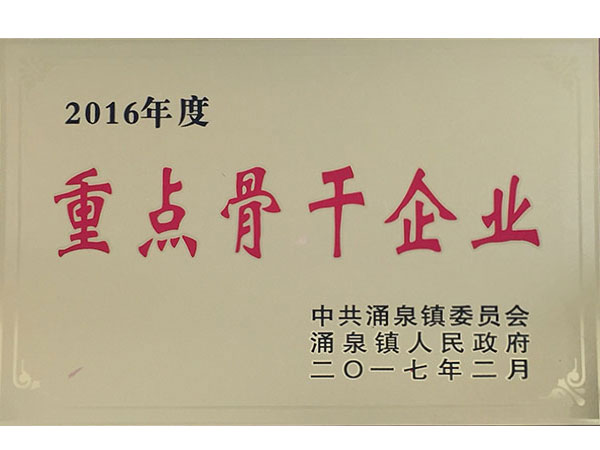 2016年度
重点骨干企业
中共涌泉镇委员会
涌泉镇人民政府
二〇一七年二月